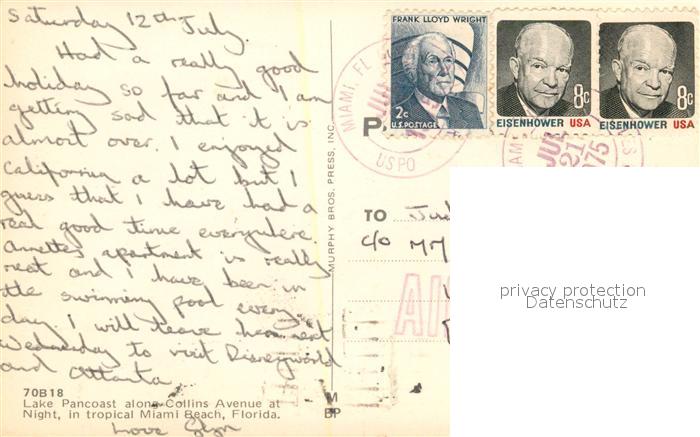 Saturday 12th July.
Had a really good
holiday so far and I am
getting sad that it is
almost over. I enjoyed
California a lot but I
guess that I have had a
real good time everywhere.
Annettes apartment is really
neat and I have been in
the swimming pool every
day. I will leave here next
Wednesday to visit Disneyworld
and Atlanta
70B18
Lake Pancoast along Collins Avenue at
Night, in tropical Miami Beach, Florida.
Love Glyn
MURPHY BROS. PRESS, INC.
M
BP
FRANK LLOYD WRIGHT
2c
U.S. POSTAGE
8c
EISENHOWER USA
8c
EISENHOWER USA
MIAMI, FL
USPO
JUL
21
1975
P
TO
c/o
AI
privacy protection
Datenschutz